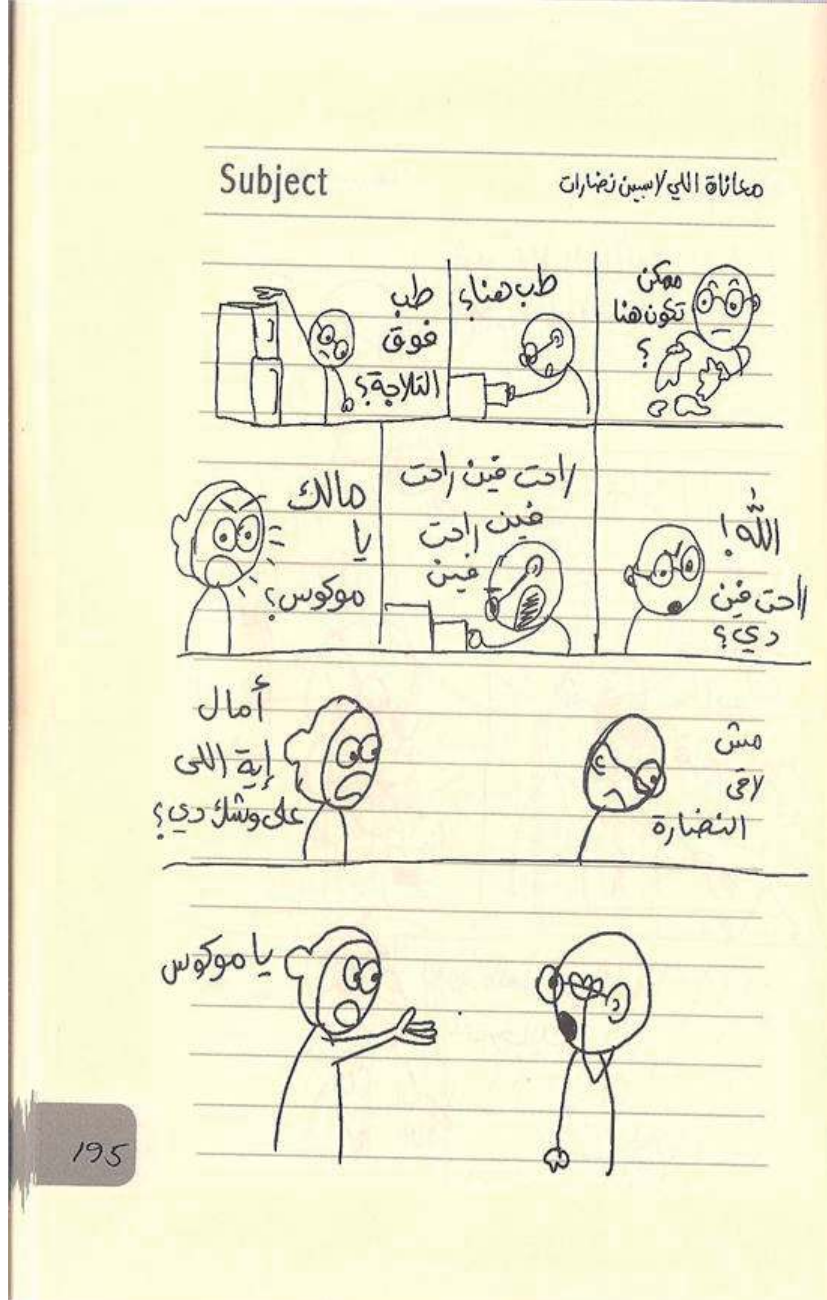 Subject
معاناة اللي لابسين نضارات
ممكن
تكون هنا
؟
طب هنا؟
طب
فوق
التلاجة؟
الله!
راحت فين
دي؟
راحت فين راحت
فين راحت
فين
مالك
يا
موكوس؟
مش
لاقى
النضارة
أمال
إية اللى
على وشك دي؟
يا موكوس
195